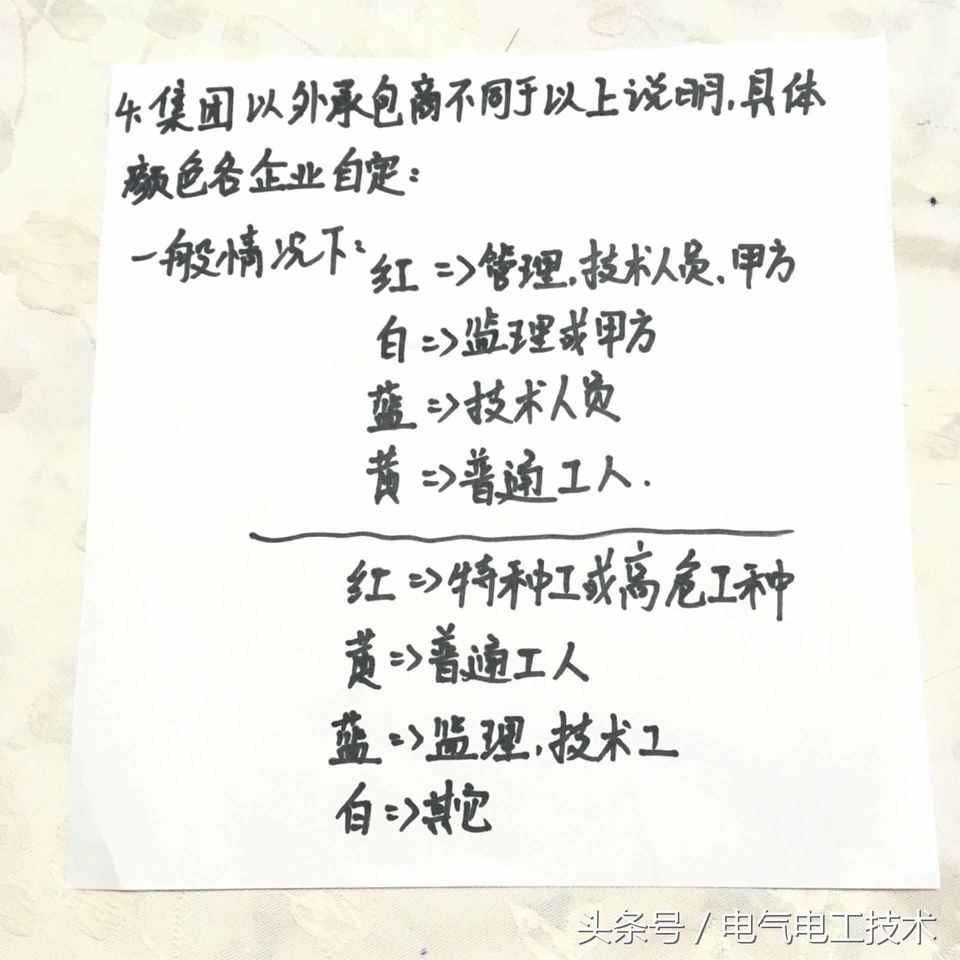 4.集团以外承包商不同于以上说明,具体
颜色各企业自定:
一般情况下:
红=>管理,技术人员,甲方
白=>监理或甲方
蓝=>技术人员
黄=>普通工人.
红=>特种工或高危工种
黄=>普通工人
蓝=>监理,技术工
白=>其它
头条号/电气电工技术